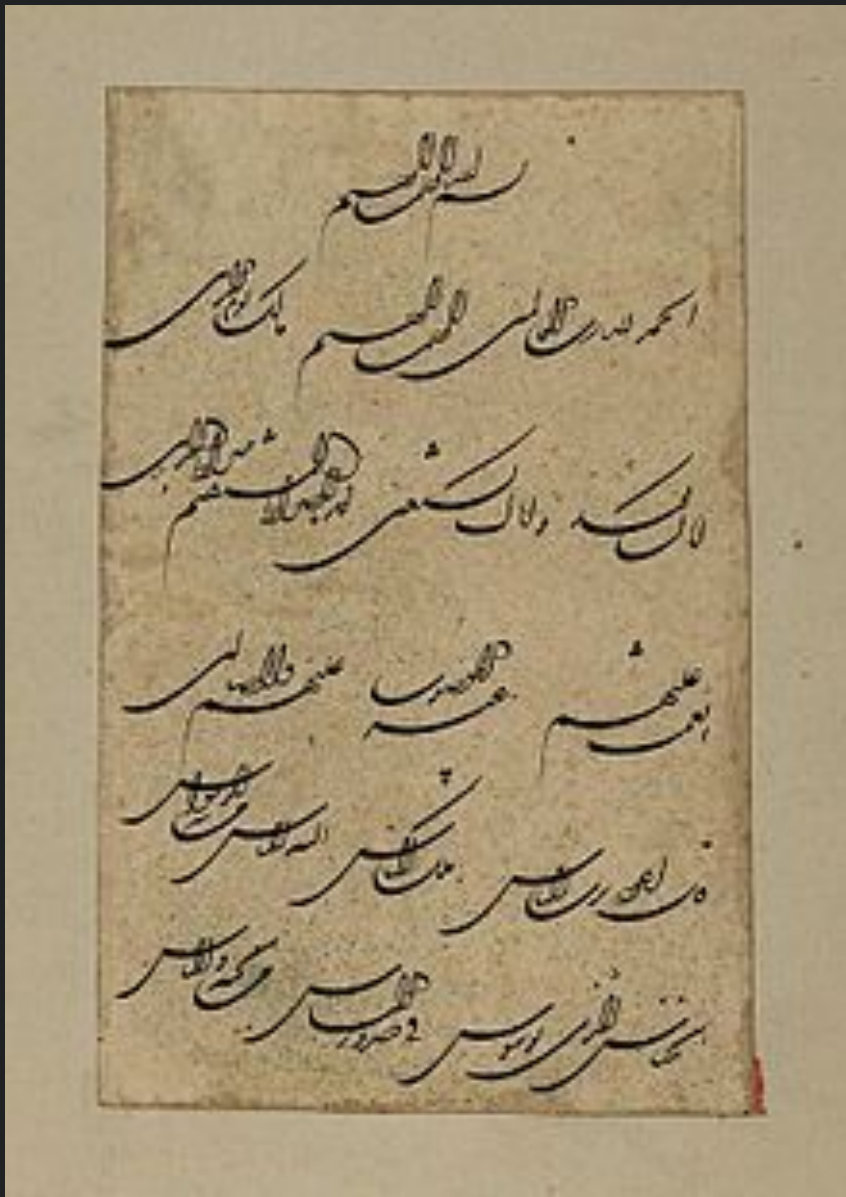 بسم الله الرحمن الرحيم
الحمد لله رب العالمين الرحمن الرحيم مالك يوم الدين
اياك نعبد واياك نستعين اهدنا الصراط المستقيم صراط الذين
انعمت عليهم غير المغضوب عليهم ولا الضالين
قل اعوذ برب الناس ملك الناس اله الناس من شر الوسواس
الخناس الذي يوسوس في صدور الناس من الجنة والناس